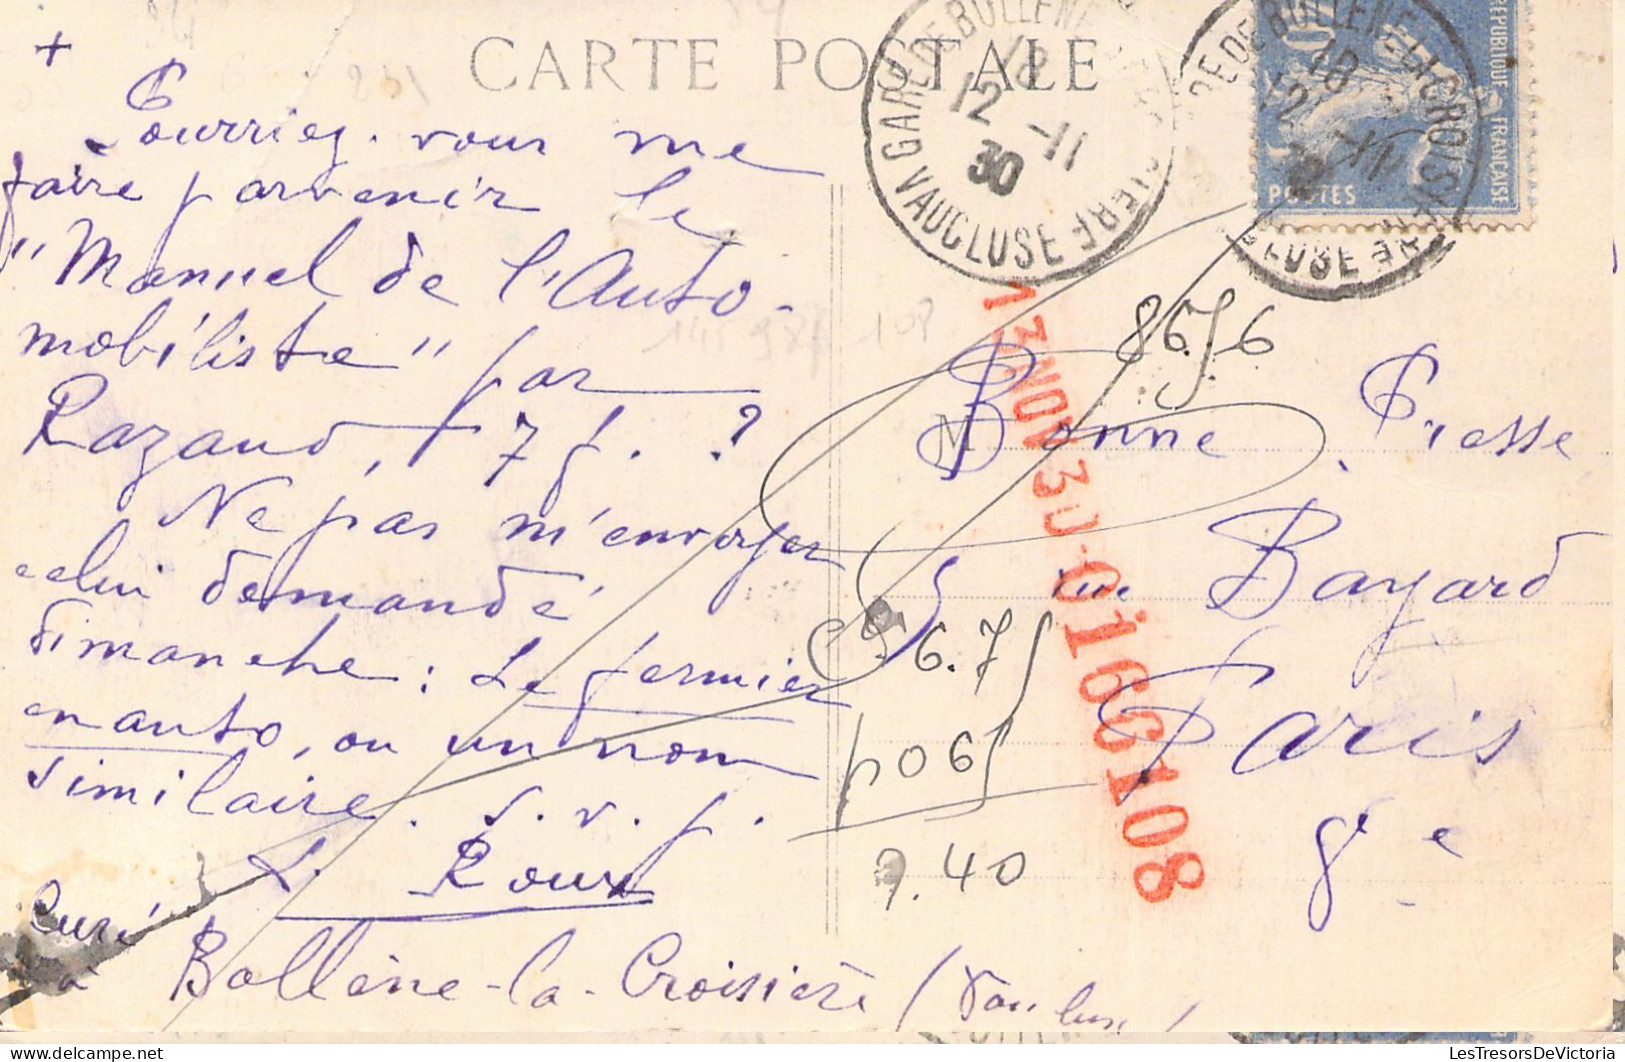 CARTE POSTALE
+
Pourriez-vous me
faire parvenir le
"Manuel de l'Auto-
mobiliste" par
Razaud, 7 f. ?
Ne pas m'envoyer
celui demandé
dimanche : Le fermier
en auto, ou un nom
similaire. S. v. p.
L. Roux
curé
à Bollène-la-Croisière (Vaucluse)
GARE DE BOLLENE
18
12 -11
30
VAUCLUSE
GARE DE BOLLENE-LA CROISIERE
18
12 -11
30
REPUBLIQUE FRANÇAISE
POSTES
13 NOV 30 - 0166108
86.56
M Bonne Presse
5 rue Bayard
Paris
8e
6.75
p065
9.40
LesTresorsDeVictoria